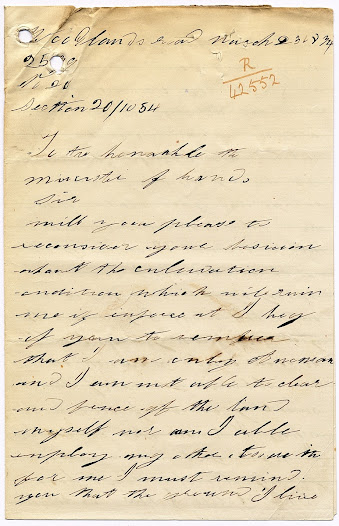 Woodlands road March 23 1884
R
42552
2590
20
Section 20/1054
To the honorable the
minister of lands
Sir
will you please to
reconsider your
about the cultivation
condition which will ruin
me if inforce at I beg
of you to
that I am only a woman
and I am not able to clear
and fence of the land
myself nor am I able
employ any other to do it
for me I must remind
you that the ground I live